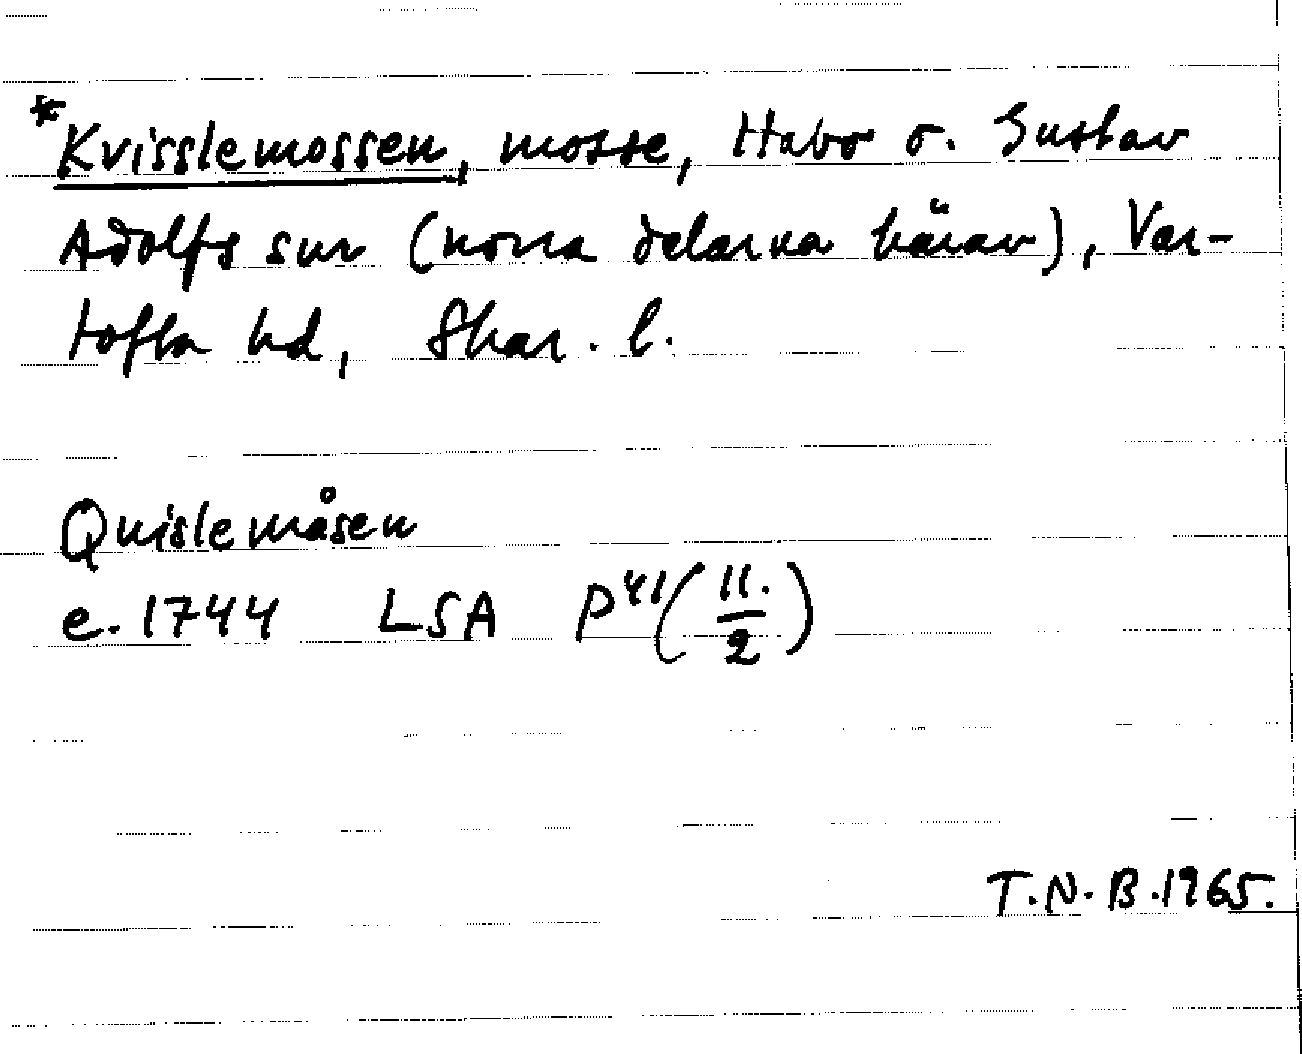 *Kvisslemossen, mosse, Habo o. Gustav
Adolfs snr (norra delarna härav), Var-
tofta hd, Skar. l.
Quislemåsen
e. 1744 LSA P41 (11./2)
T.N.B. 1965.